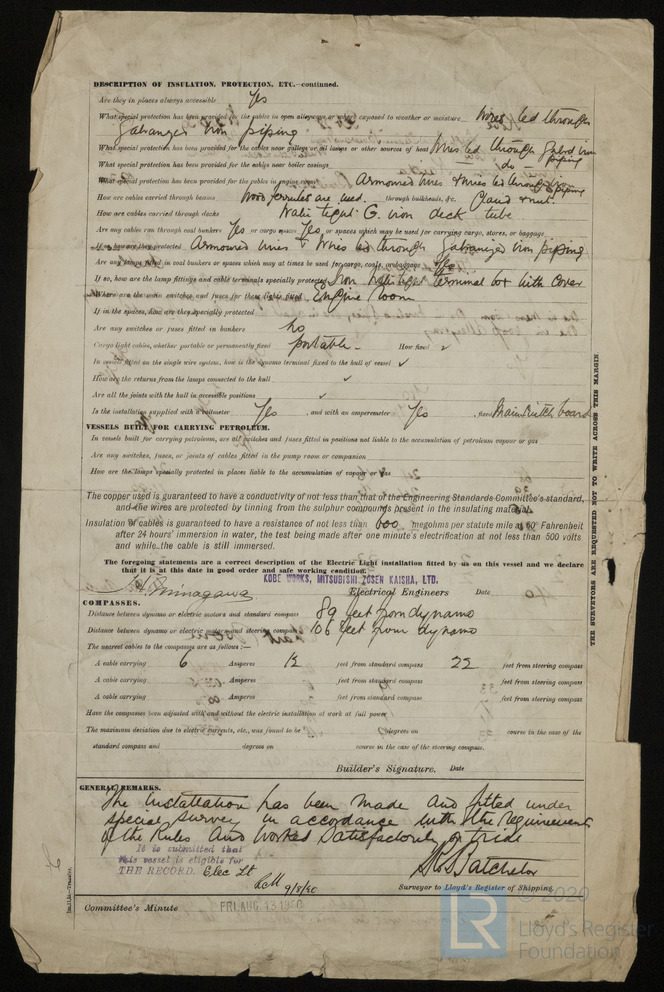 DESCRIPTION OF INSULATION, PROTECTION, ETC.—continued.
Are they in places always accessible Yes
What special protection has been provided for the cables in open alleyways or where exposed to weather or moisture Wires led through
Galvanized iron piping
What special protection has been provided for the cables near galleys or oil lamps or other sources of heat Wires led through Galvd iron piping
What special protection has been provided for the cables near boiler casings do
What special protection has been provided for the cables in engine room Armoured wires & wires led through iron piping
How are cables carried through beams Wood ferrules are used. through bulkheads, &c. Gland & nut.
How are cables carried through decks Water tight G. iron deck tube
Are any cables run through coal bunkers Yes or cargo spaces Yes or spaces which may be used for carrying cargo, stores, or baggage
If so, how are they protected Armoured wires & wires led through Galvanized iron piping
Are any lamps fitted in coal bunkers or spaces which may at times be used for cargo, coals, or baggage Yes
If so, how are the lamp fittings and cable terminals specially protected Iron water tight terminal box with cover
Where are the main switches and fuses for these lights fitted Engine Room
If in the spaces, how are they specially protected
Are any switches or fuses fitted in bunkers No
Cargo light cables, whether portable or permanently fixed portable. How fixed ✓
In vessels fitted on the single wire system, how is the dynamo terminal fixed to the hull of vessel ✓
How are the returns from the lamps connected to the hull ✓
Are all the joints with the hull in accessible positions ✓
Is the installation supplied with a voltmeter Yes, and with an amperemeter Yes, fixed Main switch board
VESSELS BUILT FOR CARRYING PETROLEUM.
In vessels built for carrying petroleum, are all switches and fuses fitted in positions not liable to the accumulation of petroleum vapour or gas
Are any switches, fuses, or joints of cables fitted in the pump room or companion
How are the lamps specially protected in places liable to the accumulation of vapour or gas
The copper used is guaranteed to have a conductivity of not less than that of the Engineering Standards Committee's standard,
and the wires are protected by tinning from the sulphur compounds present in the insulating material.
Insulation of cables is guaranteed to have a resistance of not less than 600 megohms per statute mile at 60° Fahrenheit
after 24 hours' immersion in water, the test being made after one minute's electrification at not less than 500 volts
and while the cable is still immersed.
The foregoing statements are a correct description of the Electric Light installation fitted by us on this vessel and we declare
that it is at this date in good order and safe working condition.
KOBE WORKS, MITSUBISHI ZOSEN KAISHA, LTD.
Electrical Engineers Date
COMPASSES.
Distance between dynamo or electric motors and standard compass 89 feet from dynamo
Distance between dynamo or electric motors and steering compass 106 feet from dynamo
The nearest cables to the compasses are as follows:—
A cable carrying 6 Amperes 12 feet from standard compass 22 feet from steering compass
A cable carrying Amperes feet from standard compass feet from steering compass
A cable carrying Amperes feet from standard compass feet from steering compass
Have the compasses been adjusted with and without the electric installation at work at full power
The maximum deviation due to electric currents, etc., was found to be degrees on course in the case of the
standard compass and degrees on course in the case of the steering compass.
Builder's Signature. Date
GENERAL REMARKS.
The Installation has been made and fitted under
special survey in accordance with the requirements
of the Rules and worked satisfactorily on trial
It is submitted that
this vessel is eligible for
THE RECORD. Elec Lt
9/8/20
Surveyor to Lloyd's Register of Shipping.
Committee's Minute FRI. AUG. 13 1920
THE SURVEYORS ARE REQUESTED NOT TO WRITE ACROSS THIS MARGIN.
© 2020
LR Lloyd's Register
Foundation